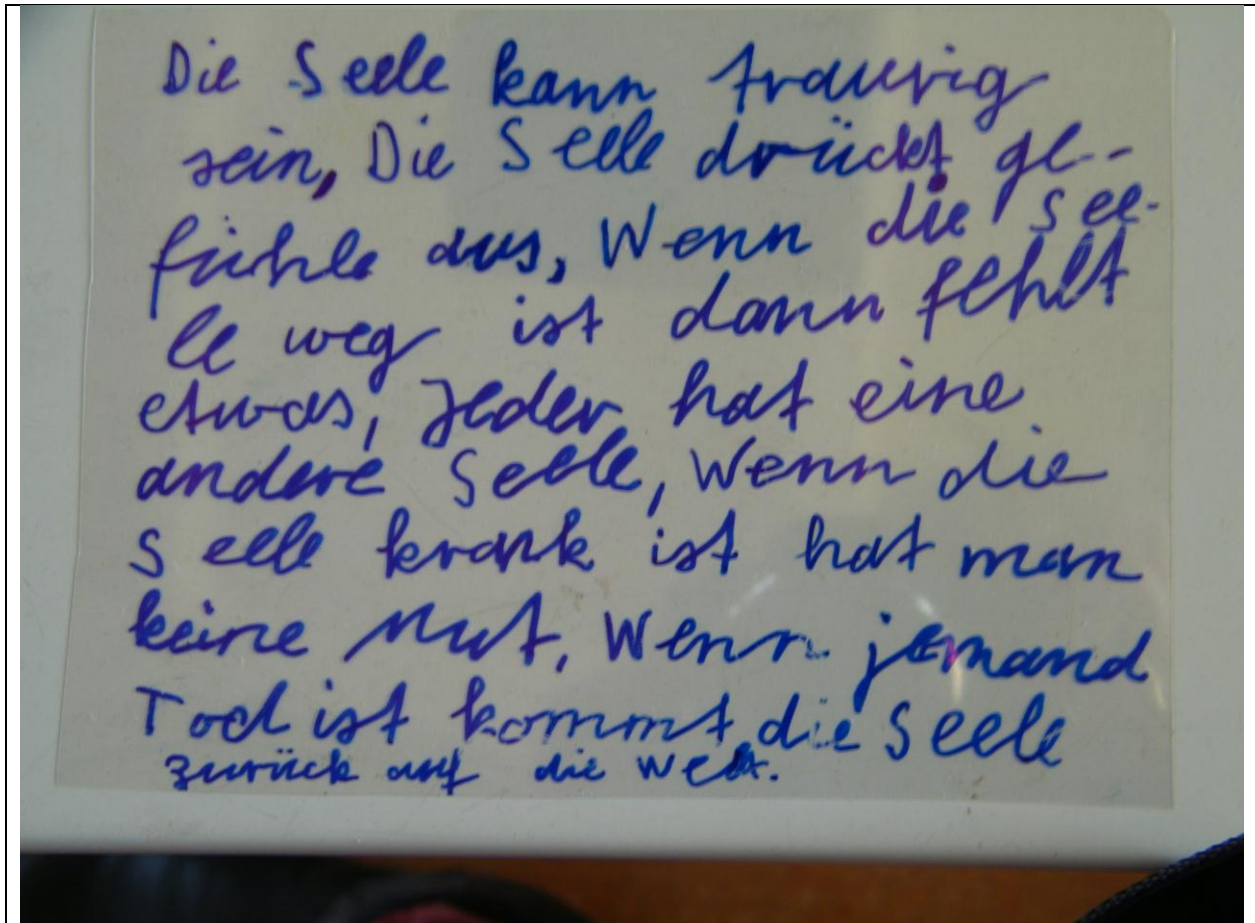 Die Seele kann traurig
sein, Die Seele drückt ge--
fühle aus, Wenn die See-
le weg ist dann fehlt
etwas, Jeder hat eine
andere Seele, Wenn die
Seele krank ist hat man
keine Mut, Wenn jemand
Tod ist kommt die Seele
zurück auf die Welt.